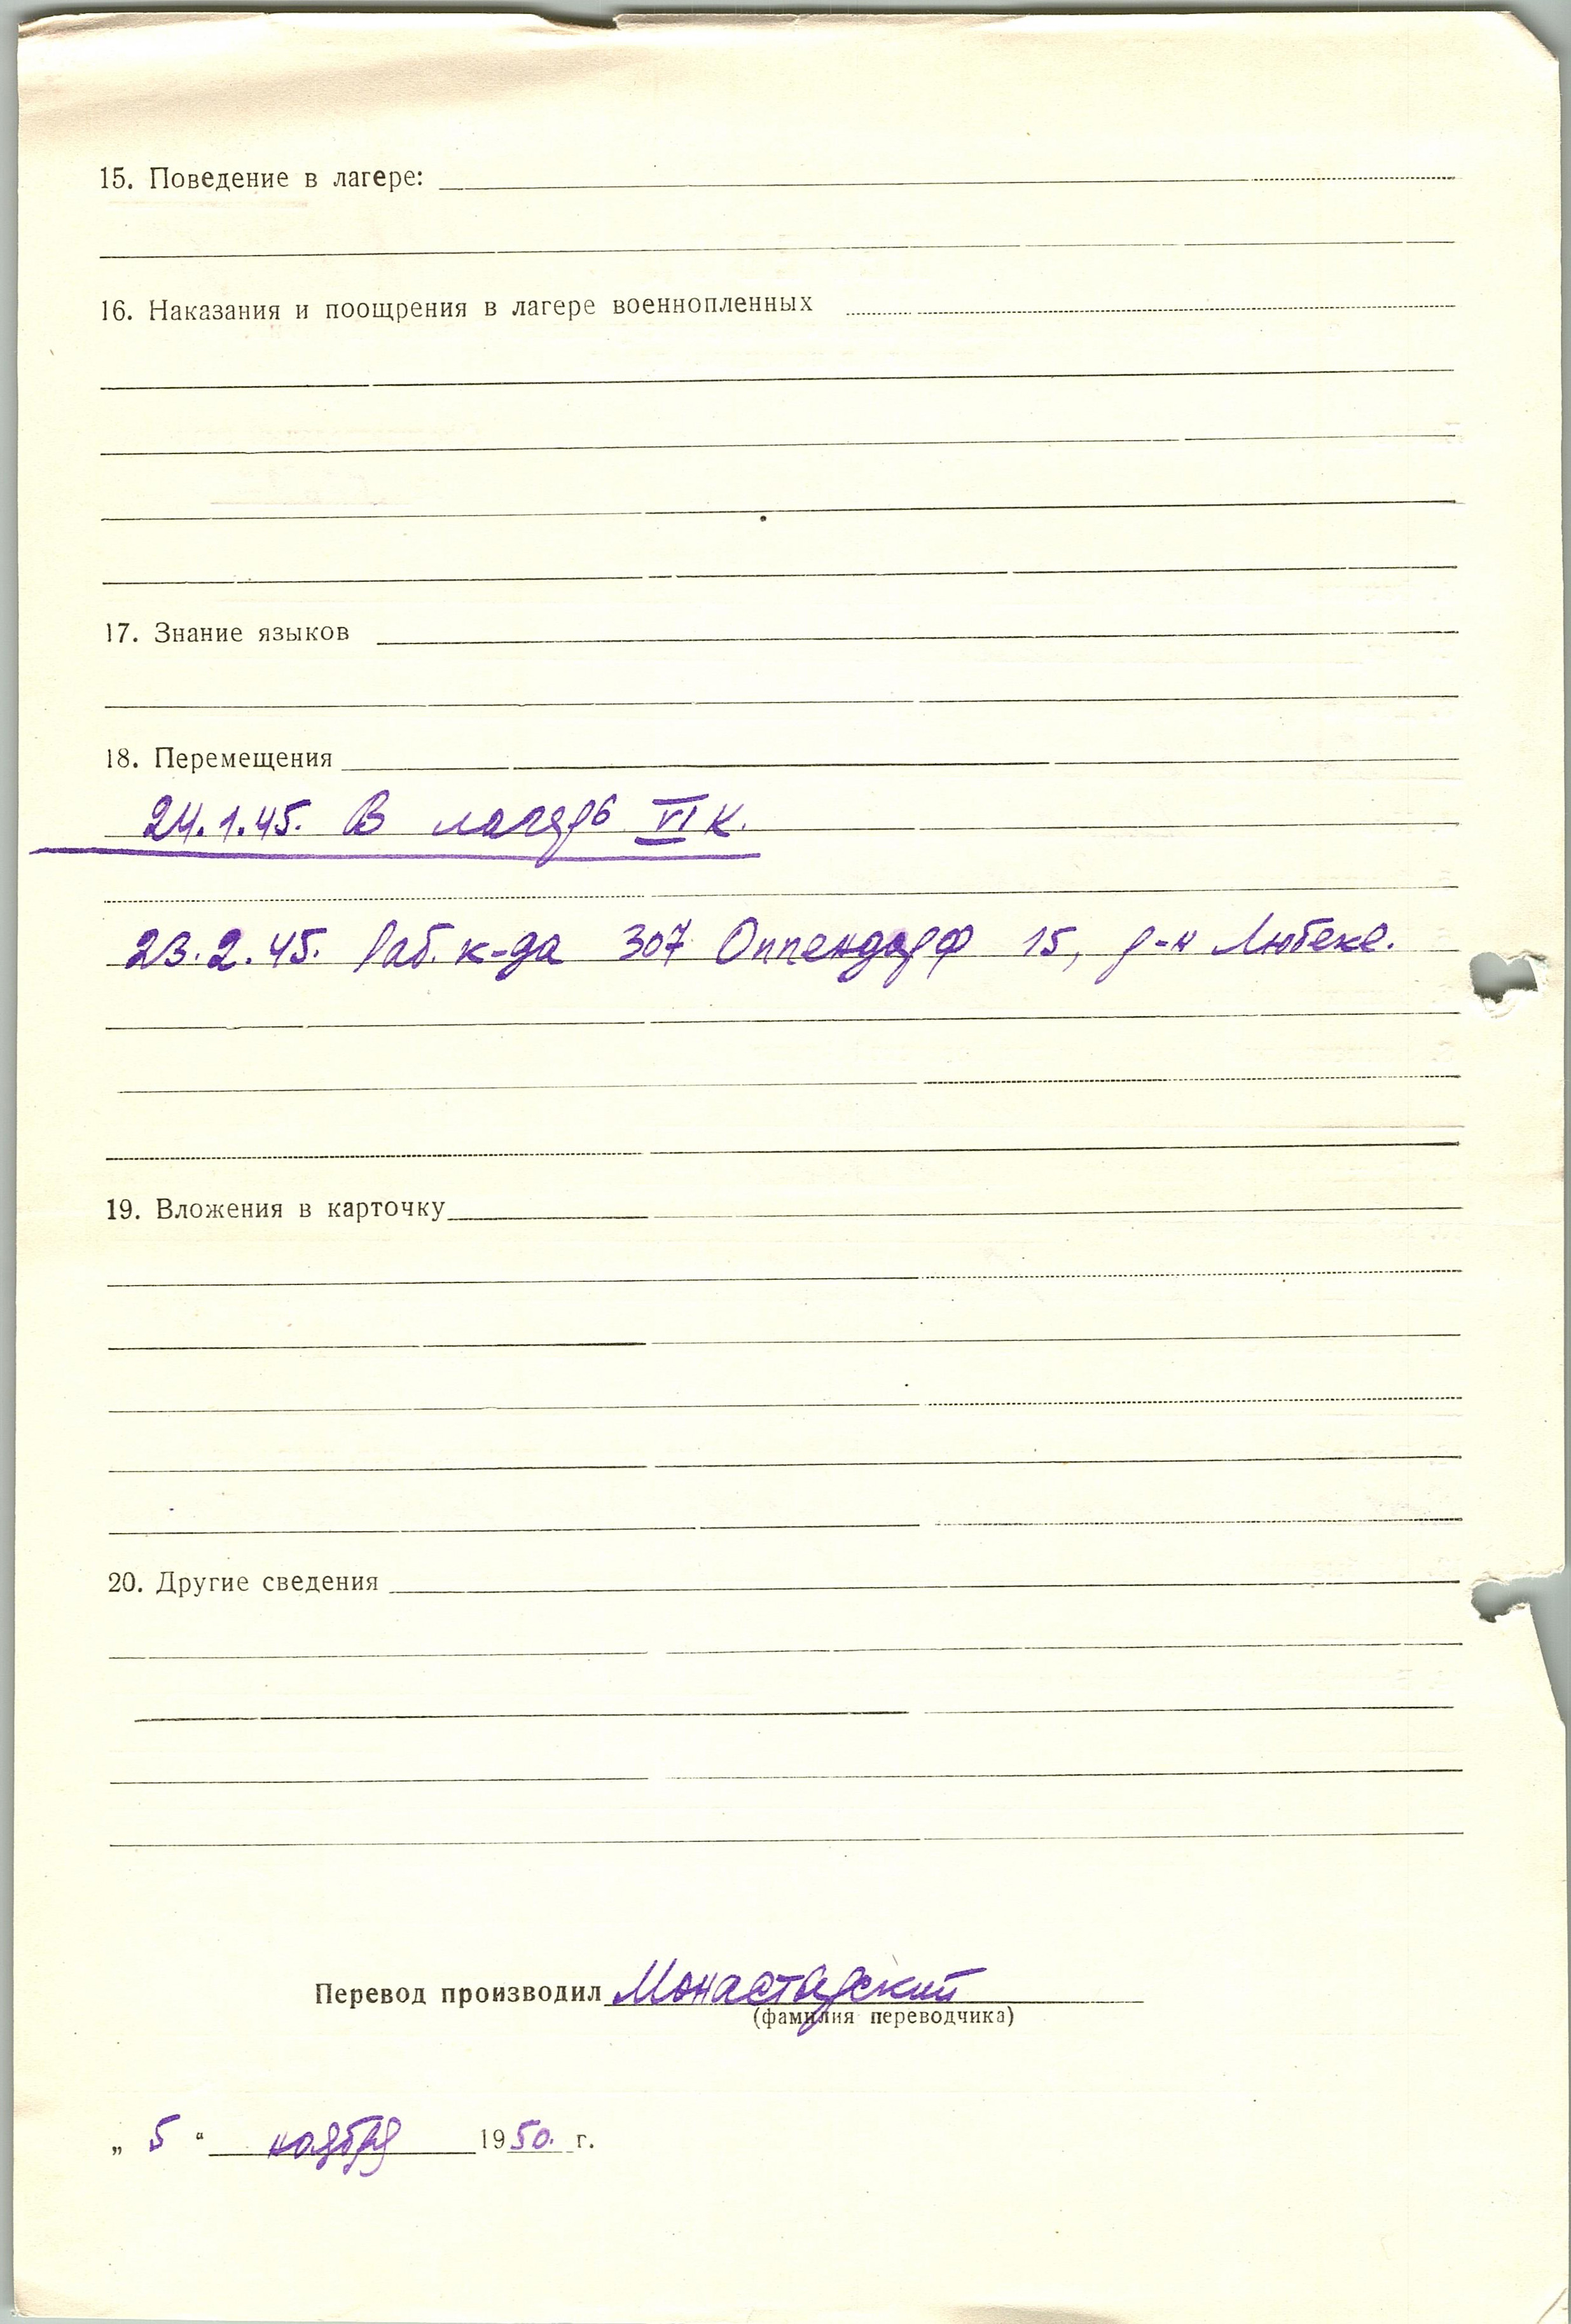 15. Поведение в лагере:
16. Наказания и поощрения в лагере военнопленных
17. Знание языков
18. Перемещения
24.1.45. В лагерь VI К.
23.2.45. Раб. к-да 307 Оппендорф 15, р-н Любеке.
19. Вложения в карточку
20. Другие сведения
Перевод производил Монастырский
(фамилия переводчика)
„ 5 “ ноября 1950. г.